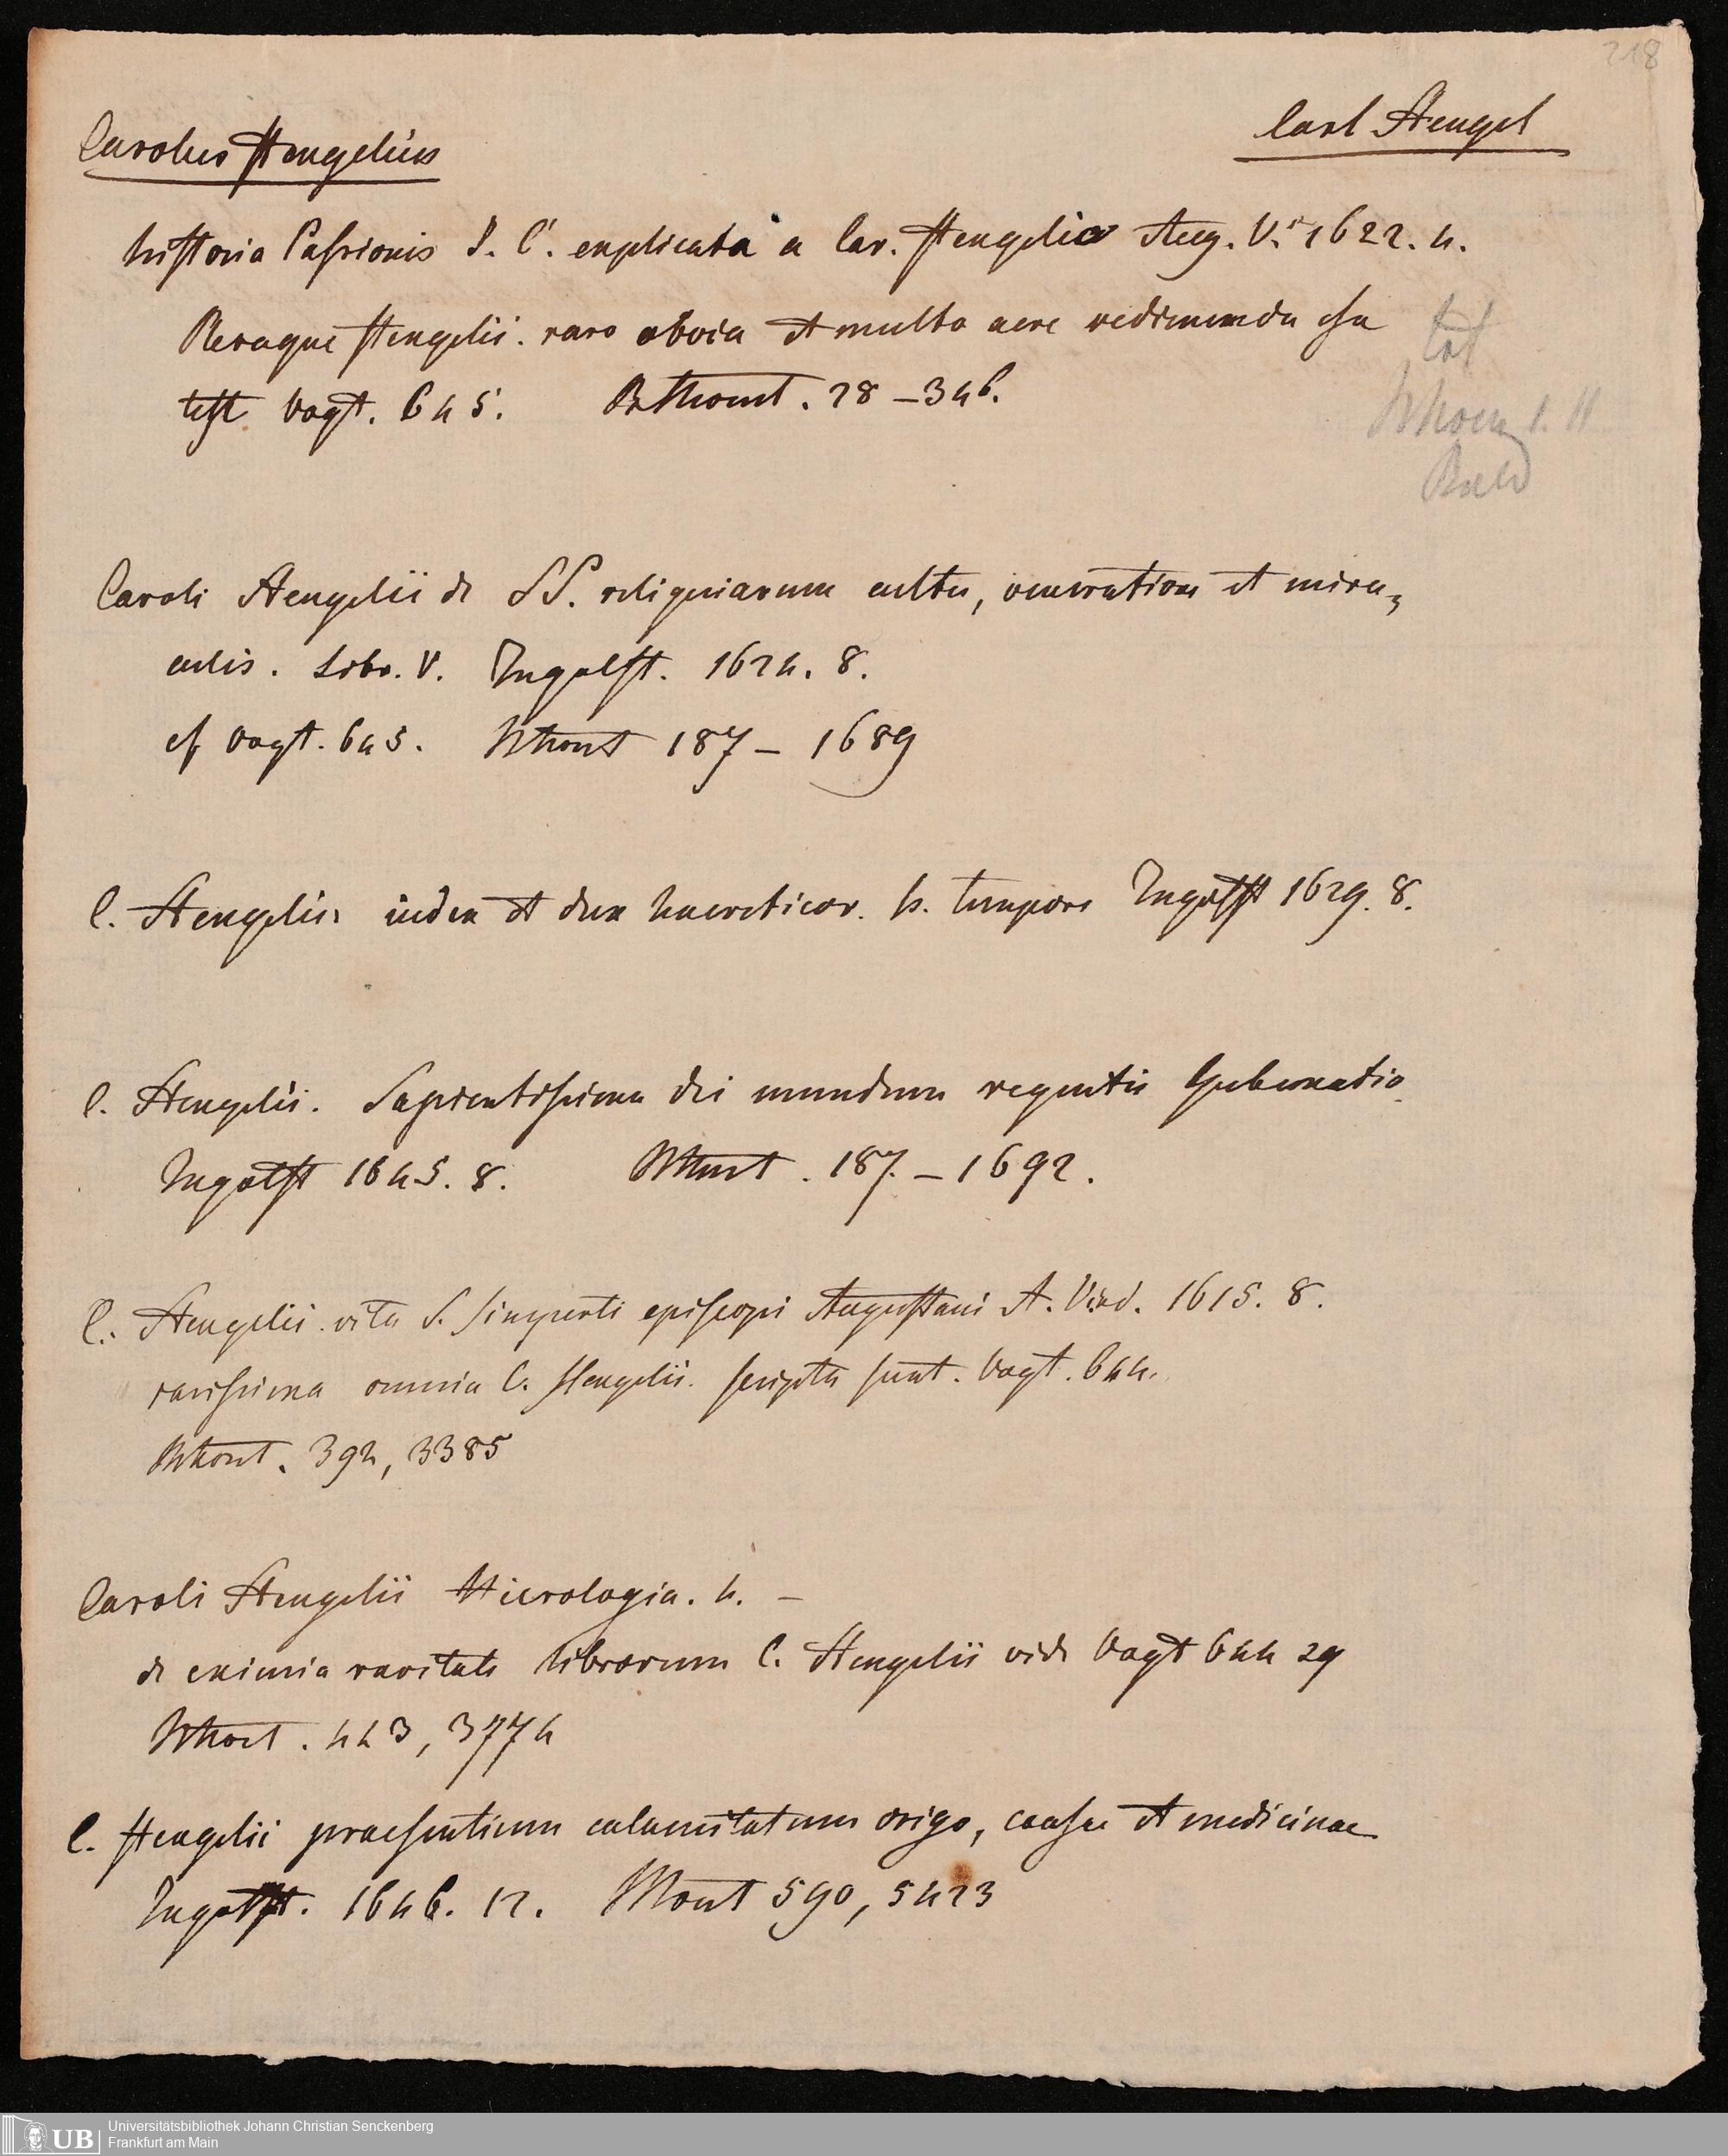 218
Carolus Stengelius
Carl Stengel
historia Passionis J. C. explicata a Car. Stengelio Aug. V. 1622. 4.
Pleraque Stengelii raro obvia et multo aere redimenda esse
test. Vogt. 645. 28 – 346.
Caroli Stengelii de SS. reliquiarum cultu, veneratione et mira„
culis. Libr. V. Ingolst. 1624. 8.
cf Vogt. 645. 187 – 1689
C. Stengelii iudex et dux haereticor. h. tempore Ingolst 1629. 8.
C. Stengelii. Sapientissima dei mundum regentis Gubernatio
Ingolst 1645. 8. 187. – 1692.
C. Stengelii vita S. Simperti episcopi Augustani A. Vind. 1615. 8.
rarissima omnia C. Stengelii scripta sunt. Vogt. 644.
394, 3385
Caroli Stengelii Hierologia. 4. –
de eximia raritate librorum C. Stengelii vide Vogt 644 sq
443, 3774
C. Stengelii praesentium calamitatum origo, causae et medicinae
Ingolst. 1646. 12. 590, 5423
UB
Universitätsbibliothek Johann Christian Senckenberg
Frankfurt am Main